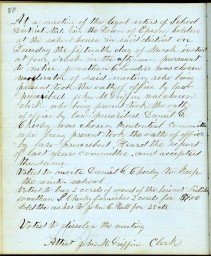 80
At a meeting of the legal voters of School
District No. in the Town of Epsom holden
at the school house in said district on
Tuesday the fifteenth day of March instant
at four o'clock in the afternoon pursuant
to notice
moderator of said meeting who being
present took the oath of office by law
prescribed John M. Griffin was chosen
clerk who being present took the oath
of office by law prescribed Daniel G.
Chesley was chosen Prudential Committee
who being present took the oath of office
by law prescribed. Heard the report
of last years committee and accepted
the same
Voted to Daniel G Chesley to keep
the winter school
Voted to buy 2 cords of wood of the lowest bidder
Jonathan S Chesley furnishes 2 cords for
Sold the ashes to John C. Hall for 25 cts
Voted to dissolve the meeting
Attest John M. Griffin Clerk